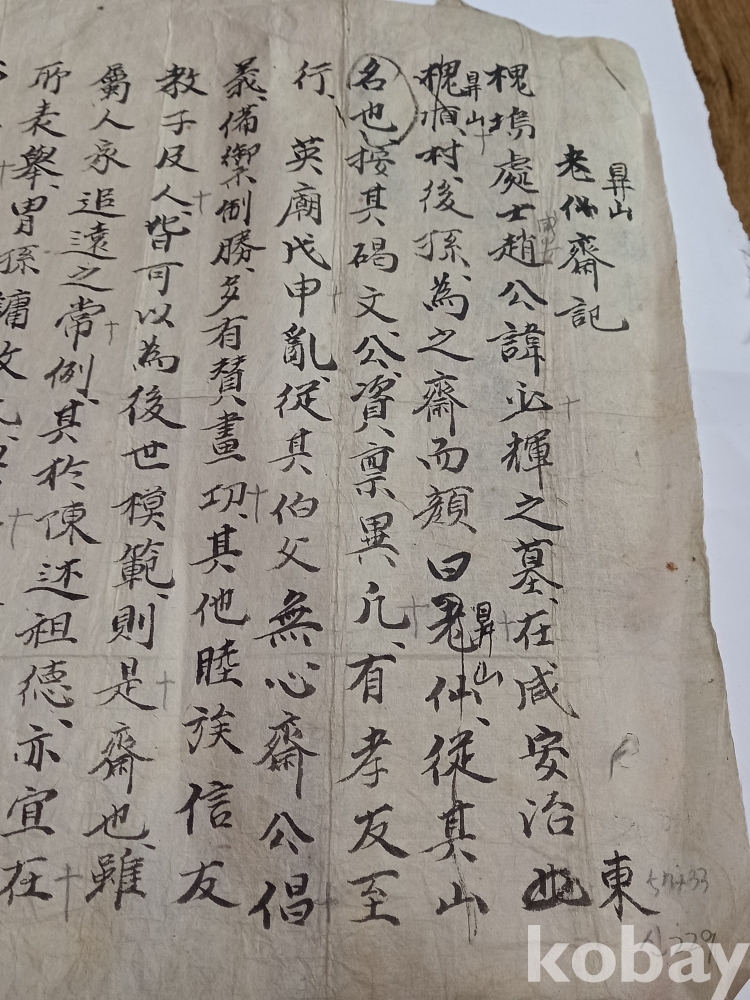 老仙齋記
昇山
槐塢處士趙公諱必輝之墓、在咸安治東
槐項村、後孫為之齋而顏曰老仙、從其山
昇山
昇山
名也、按其碣文、公資稟異凡、有孝友至
行、英廟戊申亂、從其伯父無心齋公倡
義、備禦制勝、多有賛畫功、其他睦族信友
教子及人、皆可以為後世模範、則是齋也、雖
屬人家追遠之常例、其於陳述祖德、亦宜在
所表舉、胄孫鏞
kobay